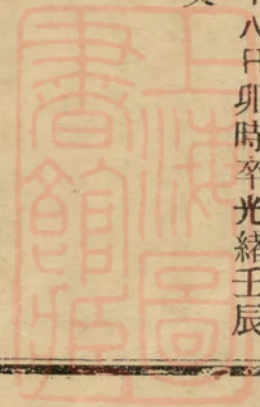 八日卯時卒光緒壬辰
上海圖
書館藏